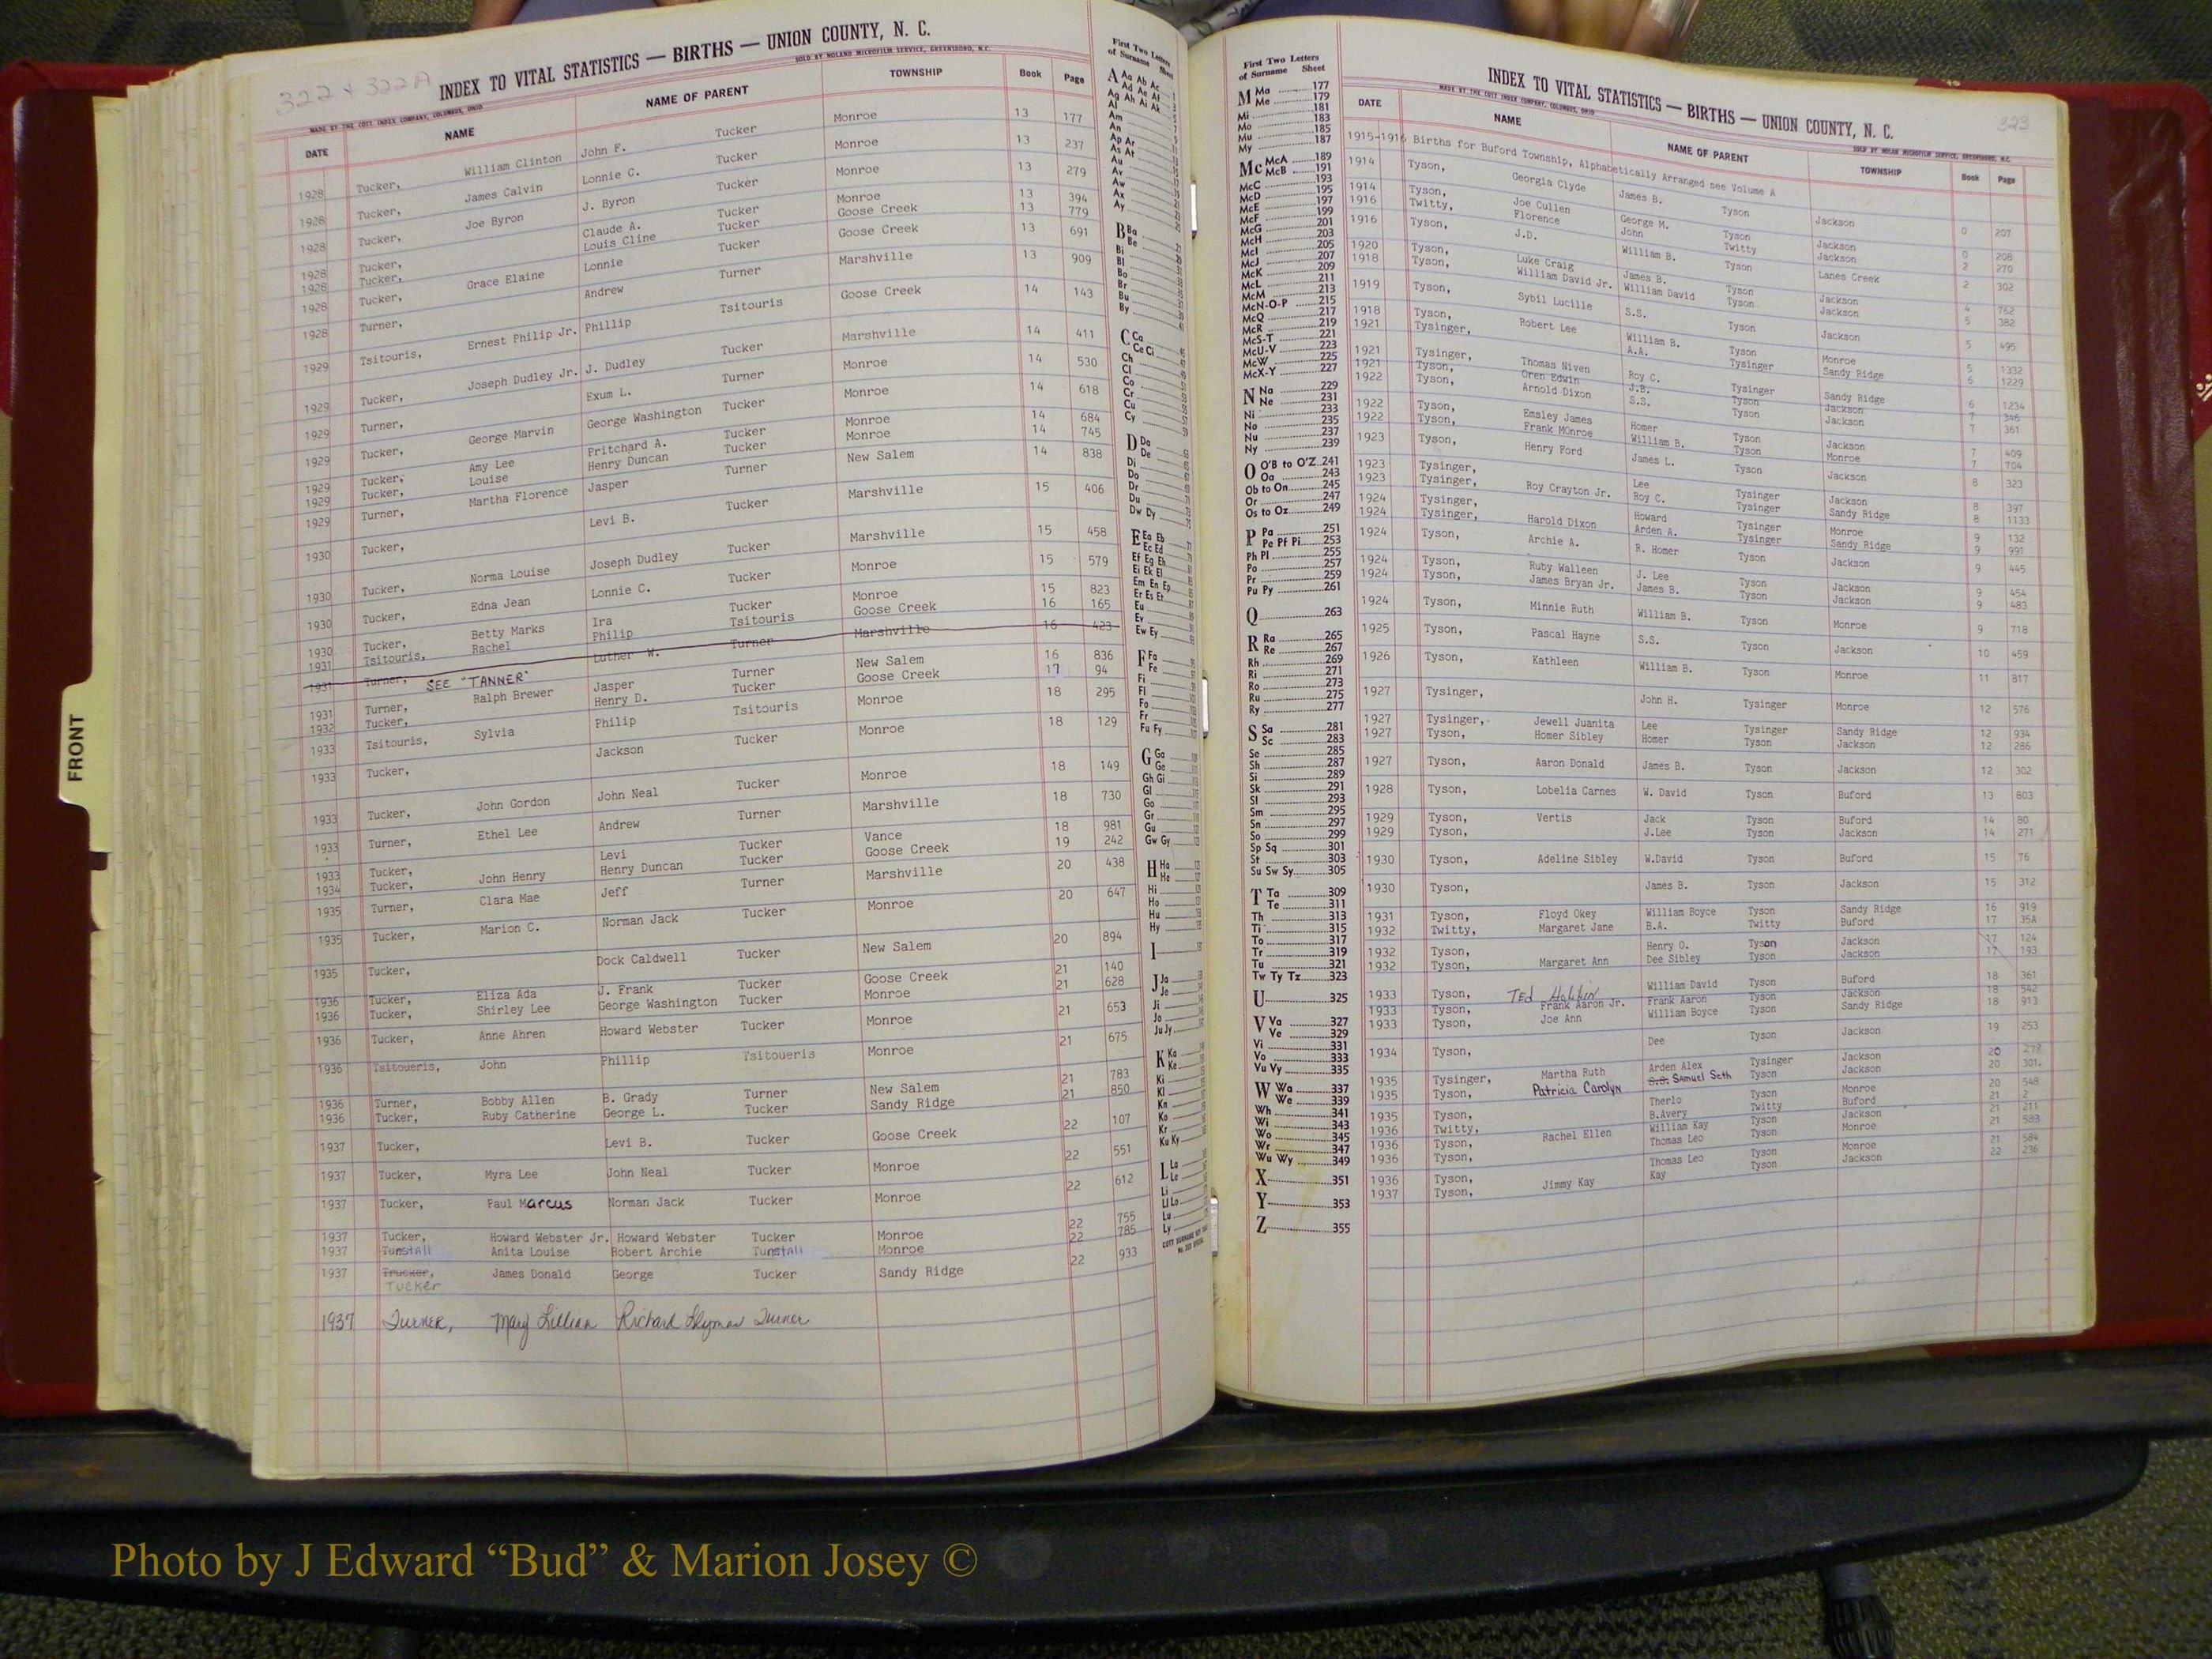 322 & 322A
INDEX TO VITAL STATISTICS — BIRTHS — UNION COUNTY, N. C.
MADE BY THE COTT INDEX COMPANY, COLUMBUS, OHIO SOLD BY NOLAND MICROFILM SERVICE, GREENSBORO, N.C.
DATE NAME NAME OF PARENT TOWNSHIP Book Page
1928 Tucker, William Clinton John F. Tucker Monroe 13 177
1928 Tucker, James Calvin Lonnie C. Tucker Monroe 13 237
1928 Tucker, Joe Byron J. Byron Tucker Monroe 13 279
1928 Tucker, Claude A. Tucker Monroe 13 394
1928 Tucker, Louis Cline Tucker Goose Creek 13 779
1928 Tucker, Grace Elaine Lonnie Tucker Goose Creek 13 691
1928 Turner, Andrew Turner Marshville 13 909
1929 Tsitouris, Ernest Philip Jr. Phillip Tsitouris Goose Creek 14 143
1929 Tucker, Joseph Dudley Jr. J. Dudley Tucker Marshville 14 411
1929 Turner, Exum L. Turner Monroe 14 530
1929 Tucker, George Marvin George Washington Tucker Monroe 14 618
1929 Tucker, Amy Lee Pritchard A. Tucker Monroe 14 684
1929 Tucker, Louise Henry Duncan Tucker Monroe 14 745
1929 Turner, Martha Florence Jasper Turner New Salem 14 838
1930 Tucker, Levi B. Tucker Marshville 15 406
1930 Tucker, Norma Louise Joseph Dudley Tucker Marshville 15 458
1930 Tucker, Edna Jean Lonnie C. Tucker Monroe 15 579
1930 Tucker, Betty Marks Ira Tucker Monroe 15 823
1931 Tsitouris, Rachel Philip Tsitouris Goose Creek 16 165
1931 Turner, SEE "TANNER" Luther W. Turner Marshville 16 423
1931 Turner, Ralph Brewer Jasper Turner New Salem 16 836
1932 Tucker, Henry D. Tucker Goose Creek 17 94
1933 Tsitouris, Sylvia Philip Tsitouris Monroe 18 295
1933 Tucker, Jackson Tucker Monroe 18 129
1933 Tucker, John Gordon John Neal Tucker Monroe 18 149
1933 Turner, Ethel Lee Andrew Turner Marshville 18 730
1933 Tucker, Levi Tucker Vance 18 981
1934 Tucker, John Henry Henry Duncan Tucker Goose Creek 19 242
1935 Turner, Clara Mae Jeff Turner Marshville 20 438
1935 Tucker, Marion C. Norman Jack Tucker Monroe 20 647
1935 Tucker, Dock Caldwell Tucker New Salem 20 894
1936 Tucker, Eliza Ada J. Frank Tucker Goose Creek 21 140
1936 Tucker, Shirley Lee George Washington Tucker Monroe 21 628
1936 Tucker, Anne Ahren Howard Webster Tucker Monroe 21 653
1936 Tsitoueris, John Phillip Tsitoueris Monroe 21 675
1936 Turner, Bobby Allen B. Grady Turner New Salem 21 783
1936 Tucker, Ruby Catherine George L. Tucker Sandy Ridge 21 850
1937 Tucker, Levi B. Tucker Goose Creek 22 107
1937 Tucker, Myra Lee John Neal Tucker Monroe 22 551
1937 Tucker, Paul Marcus Norman Jack Tucker Monroe 22 612
1937 Tucker, Howard Webster Jr. Howard Webster Tucker Monroe 22 755
1937 Tunstall Anita Louise Robert Archie Tunstall Monroe 22 785
1937 Trucker, James Donald George Tucker Sandy Ridge 22 933
Tucker
1937 Turner, Mary Lillian Richard Turner
First Two Letters
of Surname Sheet
A Aa Ab Ac
Ad Ae Af
Ag Ah Ai Ak
Al
Am
An
Ap Ar
As At
Au
Av
Aw
Ax
Ay
B Ba
Be
Bi
Bl
Bo
Br
Bu
By
C Ca
Ce Ci
Ch
Cl
Co
Cr
Cu
Cy
D Da
De
Di
Do
Dr
Du
Dw Dy
E Ea Eb
Ec Ed
Ef Eg Eh
Ei Ek El
Em En Ep
Er Es Et
Eu
Ev
Ew Ey
F Fa
Fe
Fi
Fl
Fo
Fr
Fu Fy
G Ga
Ge
Gh Gi
Gl
Go
Gr
Gu
Gw Gy
H Ha
He
Hi
Ho
Hu
Hy
I
J Ja
Je
Ji
Jo
Ju Jy
K Ka
Ke
Ki
Kl
Kn
Ko
Kr
Ku Ky
L La
Le
Li
Ll Lo
Lu
Ly
First Two Letters
of Surname Sheet
M Ma 177
Me 179
Mi 181
Mo 183
Mu 185
My 187
Mc McA 189
McB 191
McC 193
McD 195
McE 197
McF 199
McG 201
McH 203
McI 205
McJ 207
McK 209
McL 211
McM 213
McN-O-P 215
McQ 217
McR 219
McS-T 221
McU-V 223
McW 225
McX-Y 227
N Na 229
Ne 231
Ni 233
No 235
Nu 237
Ny 239
O O'B to O'Z 241
Oa 243
Ob to On 245
Or 247
Os to Oz 249
P Pa 251
Pe Pf Pi 253
Ph Pl 255
Po 257
Pr 259
Pu Py 261
Q 263
R Ra 265
Re 267
Rh 269
Ri 271
Ro 273
Ru 275
Ry 277
S Sa 281
Sc 283
Se 285
Sh 287
Si 289
Sk 291
Sl 293
Sm 295
Sn 297
So 299
Sp Sq 301
St 303
Su Sw Sy 305
T Ta 309
Te 311
Th 313
Ti 315
To 317
Tr 319
Tu 321
Tw Ty Tz 323
U 325
V Va 327
Ve 329
Vi 331
Vo 333
Vu Vy 335
W Wa 337
We 339
Wh 341
Wi 343
Wo 345
Wr 347
Wu Wy 349
X 351
Y 353
Z 355
323
INDEX TO VITAL STATISTICS — BIRTHS — UNION COUNTY, N. C.
MADE BY THE COTT INDEX COMPANY, COLUMBUS, OHIO SOLD BY NOLAN MICROFILM SERVICE, GREENSBORO, N.C.
DATE NAME NAME OF PARENT TOWNSHIP Book Page
1915-1916 Births for Buford Township, Alphabetically Arranged see Volume A
1914 Tyson, Georgia Clyde James B. Tyson Jackson 0 207
1914 Tyson, Joe Cullen George M. Tyson Jackson 0 208
1916 Twitty, Florence John Twitty Jackson 2 270
1916 Tyson, J.D. William B. Tyson Lanes Creek 2 302
1920 Tyson, Luke Craig James B. Tyson Jackson 4 762
1918 Tyson, William David Jr. William David Tyson Jackson 5 382
1919 Tyson, Sybil Lucille S.S. Tyson Jackson 5 495
1918 Tyson, Robert Lee William B. Tyson Monroe 5 1332
1921 Tysinger, A.A. Tysinger Sandy Ridge 6 1229
1921 Tysinger, Thomas Niven Roy C. Tysinger Sandy Ridge 6 1234
1921 Tyson, Oren Edwin J.B. Tyson Jackson 7 346
1922 Tyson, Arnold Dixon S.S. Tyson Jackson 7 361
1922 Tyson, Emsley James Homer Tyson Jackson 7 409
1922 Tyson, Frank MOnroe William B. Tyson Monroe 7 704
1923 Tyson, Henry Ford James L. Tyson Jackson 8 323
1923 Tysinger, Lee Tysinger Jackson 8 397
1923 Tysinger, Roy Crayton Jr. Roy C. Tysinger Sandy Ridge 8 1133
1924 Tysinger, Howard Tysinger Monroe 9 132
1924 Tysinger, Harold Dixon Arden A. Tysinger Sandy Ridge 9 991
1924 Tyson, Archie A. R. Homer Tyson Jackson 9 445
1924 Tyson, Ruby Walleen J. Lee Tyson Jackson 9 454
1924 Tyson, James Bryan Jr. James B. Tyson Jackson 9 483
1924 Tyson, Minnie Ruth William B. Tyson Monroe 9 718
1925 Tyson, Pascal Hayne S.S. Tyson Jackson 10 459
1926 Tyson, Kathleen William B. Tyson Monroe 11 817
1927 Tysinger, John H. Tysinger Monroe 12 576
1927 Tysinger, Jewell Juanita Lee Tysinger Sandy Ridge 12 934
1927 Tyson, Homer Sibley Homer Tyson Jackson 12 286
1927 Tyson, Aaron Donald James B. Tyson Jackson 12 302
1928 Tyson, Lobelia Carnes W. David Tyson Buford 13 803
1929 Tyson, Vertis Jack Tyson Buford 14 80
1929 Tyson, J.Lee Tyson Jackson 14 271
1930 Tyson, Adeline Sibley W.David Tyson Buford 15 76
1930 Tyson, James B. Tyson Jackson 15 312
1931 Tyson, Floyd Okey William Boyce Tyson Sandy Ridge 16 919
1932 Twitty, Margaret Jane B.A. Twitty Buford 17 35A
1932 Tyson, Henry O. Tyson Jackson 17 124
1932 Tyson, Margaret Ann Dee Sibley Tyson Jackson 17 193
1933 Tyson, TED William David Tyson Buford 18 361
1933 Tyson, Frank Aaron Jr. Frank Aaron Tyson Jackson 18 542
1933 Tyson, Joe Ann William Boyce Tyson Sandy Ridge 18 913
1934 Tyson, Dee Tyson Jackson 19 253
1935 Tysinger, Martha Ruth Arden Alex Tysinger Jackson 20
1935 Tyson, Patricia Carolyn S.S. Samuel Seth Tyson Jackson 20 301
1935 Tyson, Therlo Tyson Monroe 20 548
1936 Twitty, B.Avery Twitty Buford 21 2
1936 Tyson, Rachel Ellen William Kay Tyson Jackson 21 211
1936 Tyson, Thomas Leo Tyson Monroe 21 583
1936 Tyson, Thomas Leo Tyson Monroe 21 584
1937 Tyson, Jimmy Kay Kay Tyson Jackson 22 236
FRONT
Photo by J Edward “Bud” & Marion Josey ©